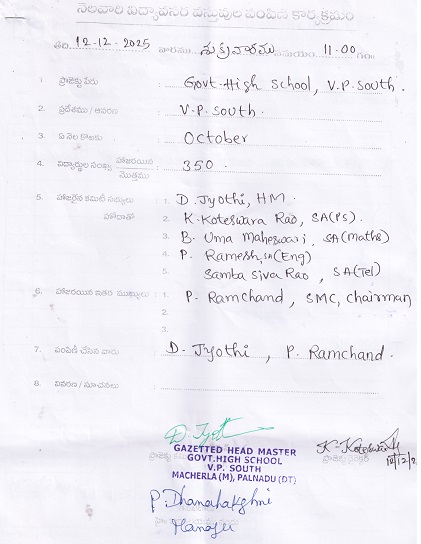 నెలవారి విద్యావసర వస్తువుల పంపిణి కార్యక్రమం
తేది 12-12-2025 వారము శుక్రవారము సమయం 11-00 గం
1. ప్రాజెక్టు పేరు : Govt-High School, V.P. South.
2. ప్రదేశము / ఆవరణ : V.P. South.
3. ఏ నెల కొఱకు : October
4. విద్యార్థుల సంఖ్య హాజరయిన / మొత్తము : 350.
5. హాజరైన కమిటీ సభ్యులు : 1. D. Jyothi, HM.
హోదాతో 2. K. Koteswara Rao, SA(PS).
3. B. Uma Maheswari, SA(Maths)
4. P. Ramesh, SA(Eng)
5. Samba Siva Rao, SA(Tel)
6. హాజరయిన ఇతర ముఖ్యులు : 1. P. Ramchand, SMC, Chairman
2.
3.
7. పంపిణీ చేసిన వారు : D. Jyothi, P. Ramchand.
8. వివరణ / సూచనలు :
D. Jyoti
GAZETTED HEAD MASTER
GOVT.HIGH SCHOOL
V.P. SOUTH
MACHERLA (M), PALNADU (DT)
K. Koteswara
ప్రాజెక్టు
12/12/2
P. Dhanalakshmi
Manager